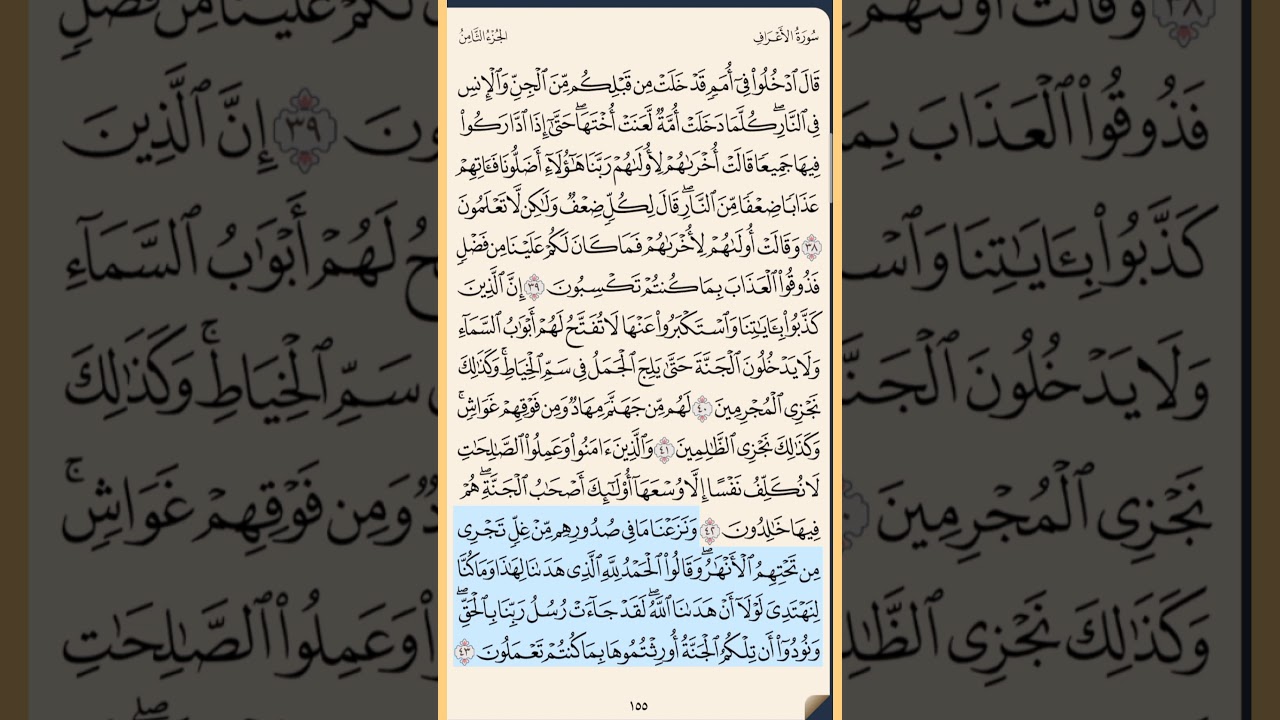 سُورَةُ الأَعۡرَافِ
الجُزۡءُ الثَّامِنُ
قَالَ ٱدۡخُلُواْ فِيٓ أُمَمٖ قَدۡ خَلَتۡ مِن قَبۡلِكُم مِّنَ ٱلۡجِنِّ وَٱلۡإِنسِ
فِي ٱلنَّارِۖ كُلَّمَا دَخَلَتۡ أُمَّةٞ لَّعَنَتۡ أُخۡتَهَاۖ حَتَّىٰٓ إِذَا ٱدَّارَكُواْ
فِيهَا جَمِيعٗا قَالَتۡ أُخۡرَىٰهُمۡ لِأُولَىٰهُمۡ رَبَّنَا هَٰٓؤُلَآءِ أَضَلُّونَا فَـَٔاتِهِمۡ
عَذَابٗا ضِعۡفٗا مِّنَ ٱلنَّارِۖ قَالَ لِكُلّٖ ضِعۡفٞ وَلَٰكِن لَّا تَعۡلَمُونَ
٣٨ وَقَالَتۡ أُولَىٰهُمۡ لِأُخۡرَىٰهُمۡ فَمَا كَانَ لَكُمۡ عَلَيۡنَا مِن فَضۡلٖ
فَذُوقُواْ ٱلۡعَذَابَ بِمَا كُنتُمۡ تَكۡسِبُونَ ٣٩ إِنَّ ٱلَّذِينَ
كَذَّبُواْ بِـَٔايَٰتِنَا وَٱسۡتَكۡبَرُواْ عَنۡهَا لَا تُفَتَّحُ لَهُمۡ أَبۡوَٰبُ ٱلسَّمَآءِ
وَلَا يَدۡخُلُونَ ٱلۡجَنَّةَ حَتَّىٰ يَلِجَ ٱلۡجَمَلُ فِي سَمِّ ٱلۡخِيَاطِۚ وَكَذَٰلِكَ
نَجۡزِي ٱلۡمُجۡرِمِينَ ٤٠ لَهُم مِّن جَهَنَّمَ مِهَادٞ وَمِن فَوۡقِهِمۡ غَوَاشٖۚ
وَكَذَٰلِكَ نَجۡزِي ٱلظَّٰلِمِينَ ٤١ وَٱلَّذِينَ ءَامَنُواْ وَعَمِلُواْ ٱلصَّٰلِحَٰتِ
لَا نُكَلِّفُ نَفۡسًا إِلَّا وُسۡعَهَآ أُوْلَٰٓئِكَ أَصۡحَٰبُ ٱلۡجَنَّةِۖ هُمۡ
فِيهَا خَٰلِدُونَ ٤٢ وَنَزَعۡنَا مَا فِي صُدُورِهِم مِّنۡ غِلّٖ تَجۡرِي
مِن تَحۡتِهِمُ ٱلۡأَنۡهَٰرُۖ وَقَالُواْ ٱلۡحَمۡدُ لِلَّهِ ٱلَّذِي هَدَىٰنَا لِهَٰذَا وَمَا كُنَّا
لِنَهۡتَدِيَ لَوۡلَآ أَنۡ هَدَىٰنَا ٱللَّهُۖ لَقَدۡ جَآءَتۡ رُسُلُ رَبِّنَا بِٱلۡحَقِّۖ
وَنُودُوٓاْ أَن تِلۡكُمُ ٱلۡجَنَّةُ أُورِثۡتُمُوهَا بِمَا كُنتُمۡ تَعۡمَلُونَ ٤٣
١٥٥